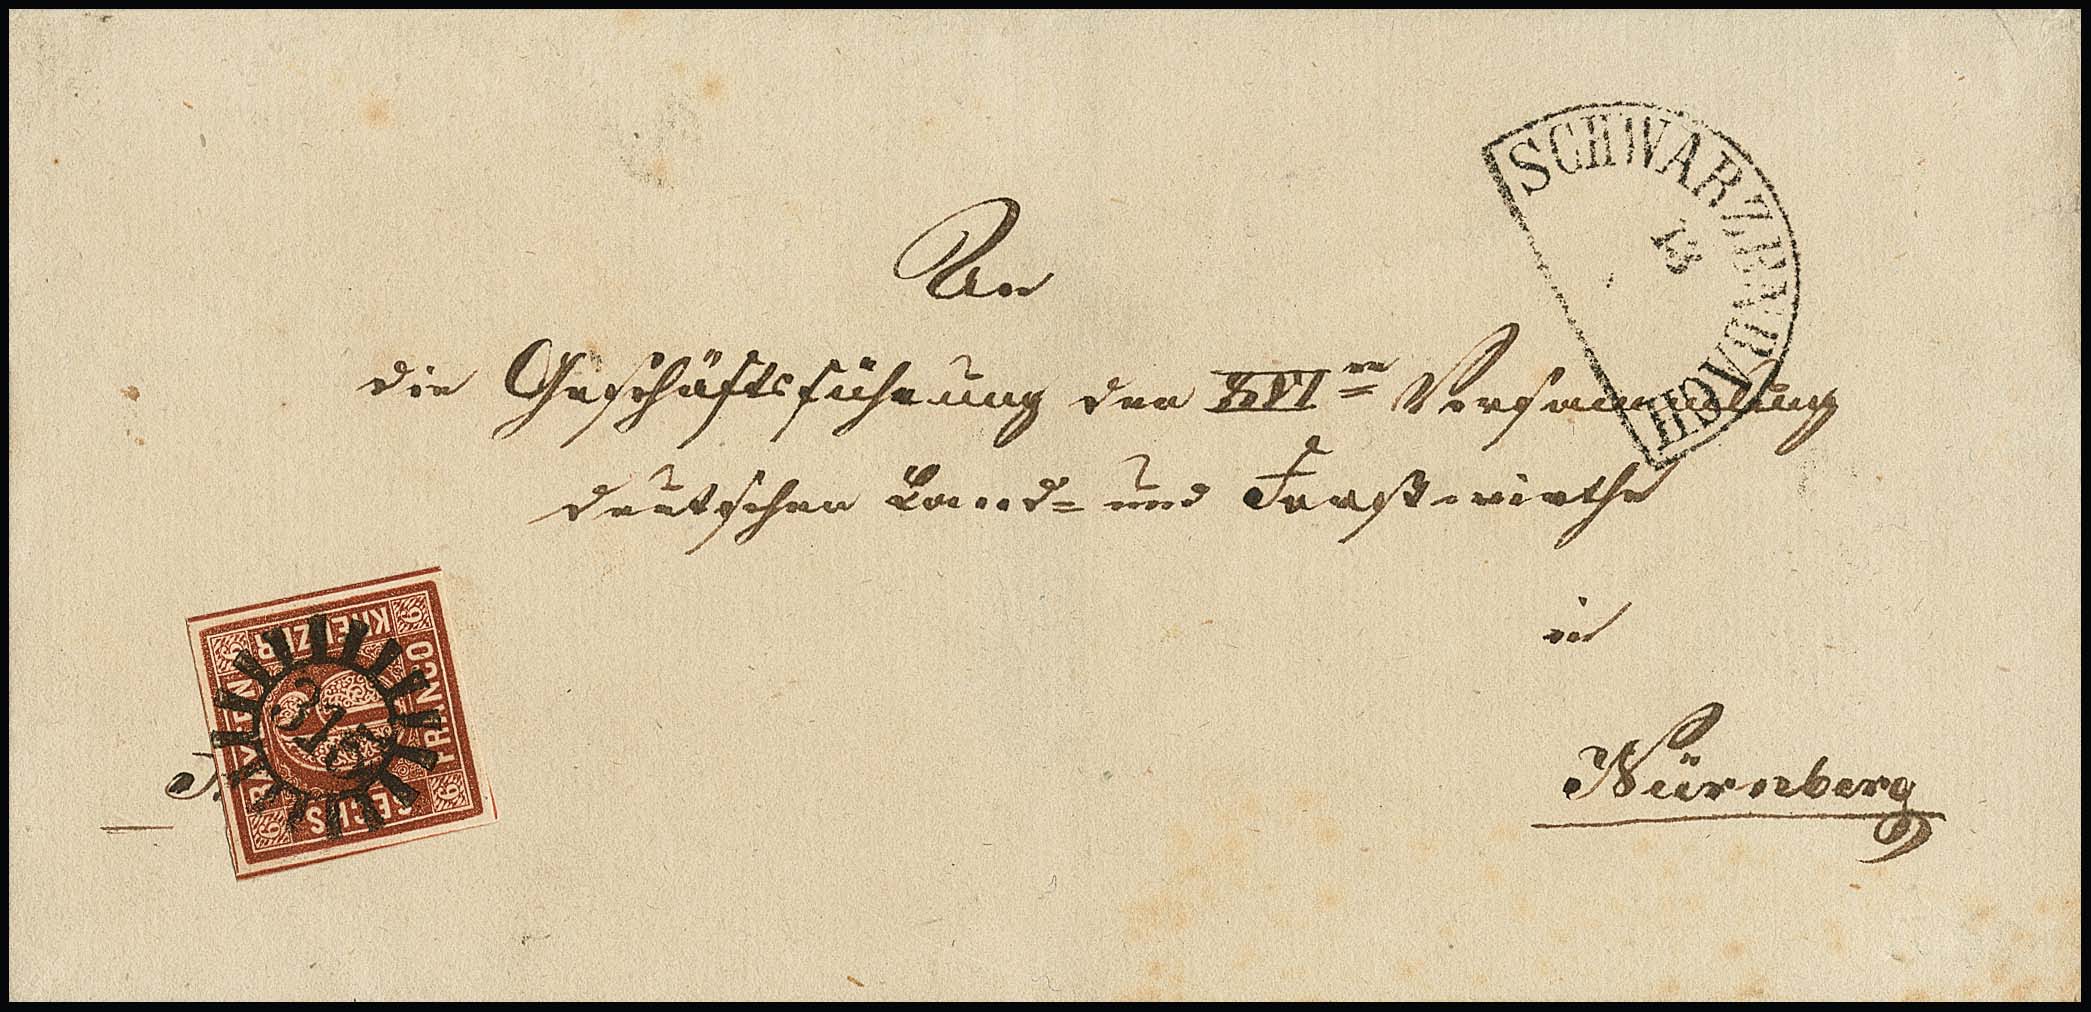 SCHWARZENBACH
An
die Geschäftsführung der XVI Versammlung
deutscher Land= und Forstwirthe
in
Nürnberg
BAYERN
KREUZER
FRANCO
SECHS
6
6
6
6